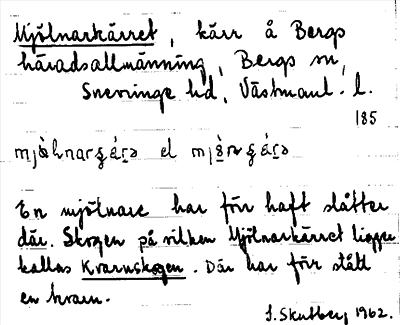 Mjölnarkärret, kärr å Bergs
häradsallmänning, Bergs sn,
Snevringe hd, Västmanl. l.
185
el
En mjölnare har förr haft slåtter
där. Skogen på vilken Mjölnarkärret ligger
kallas Kvarnskogen. Där har förr stått
en kvarn.
1962.